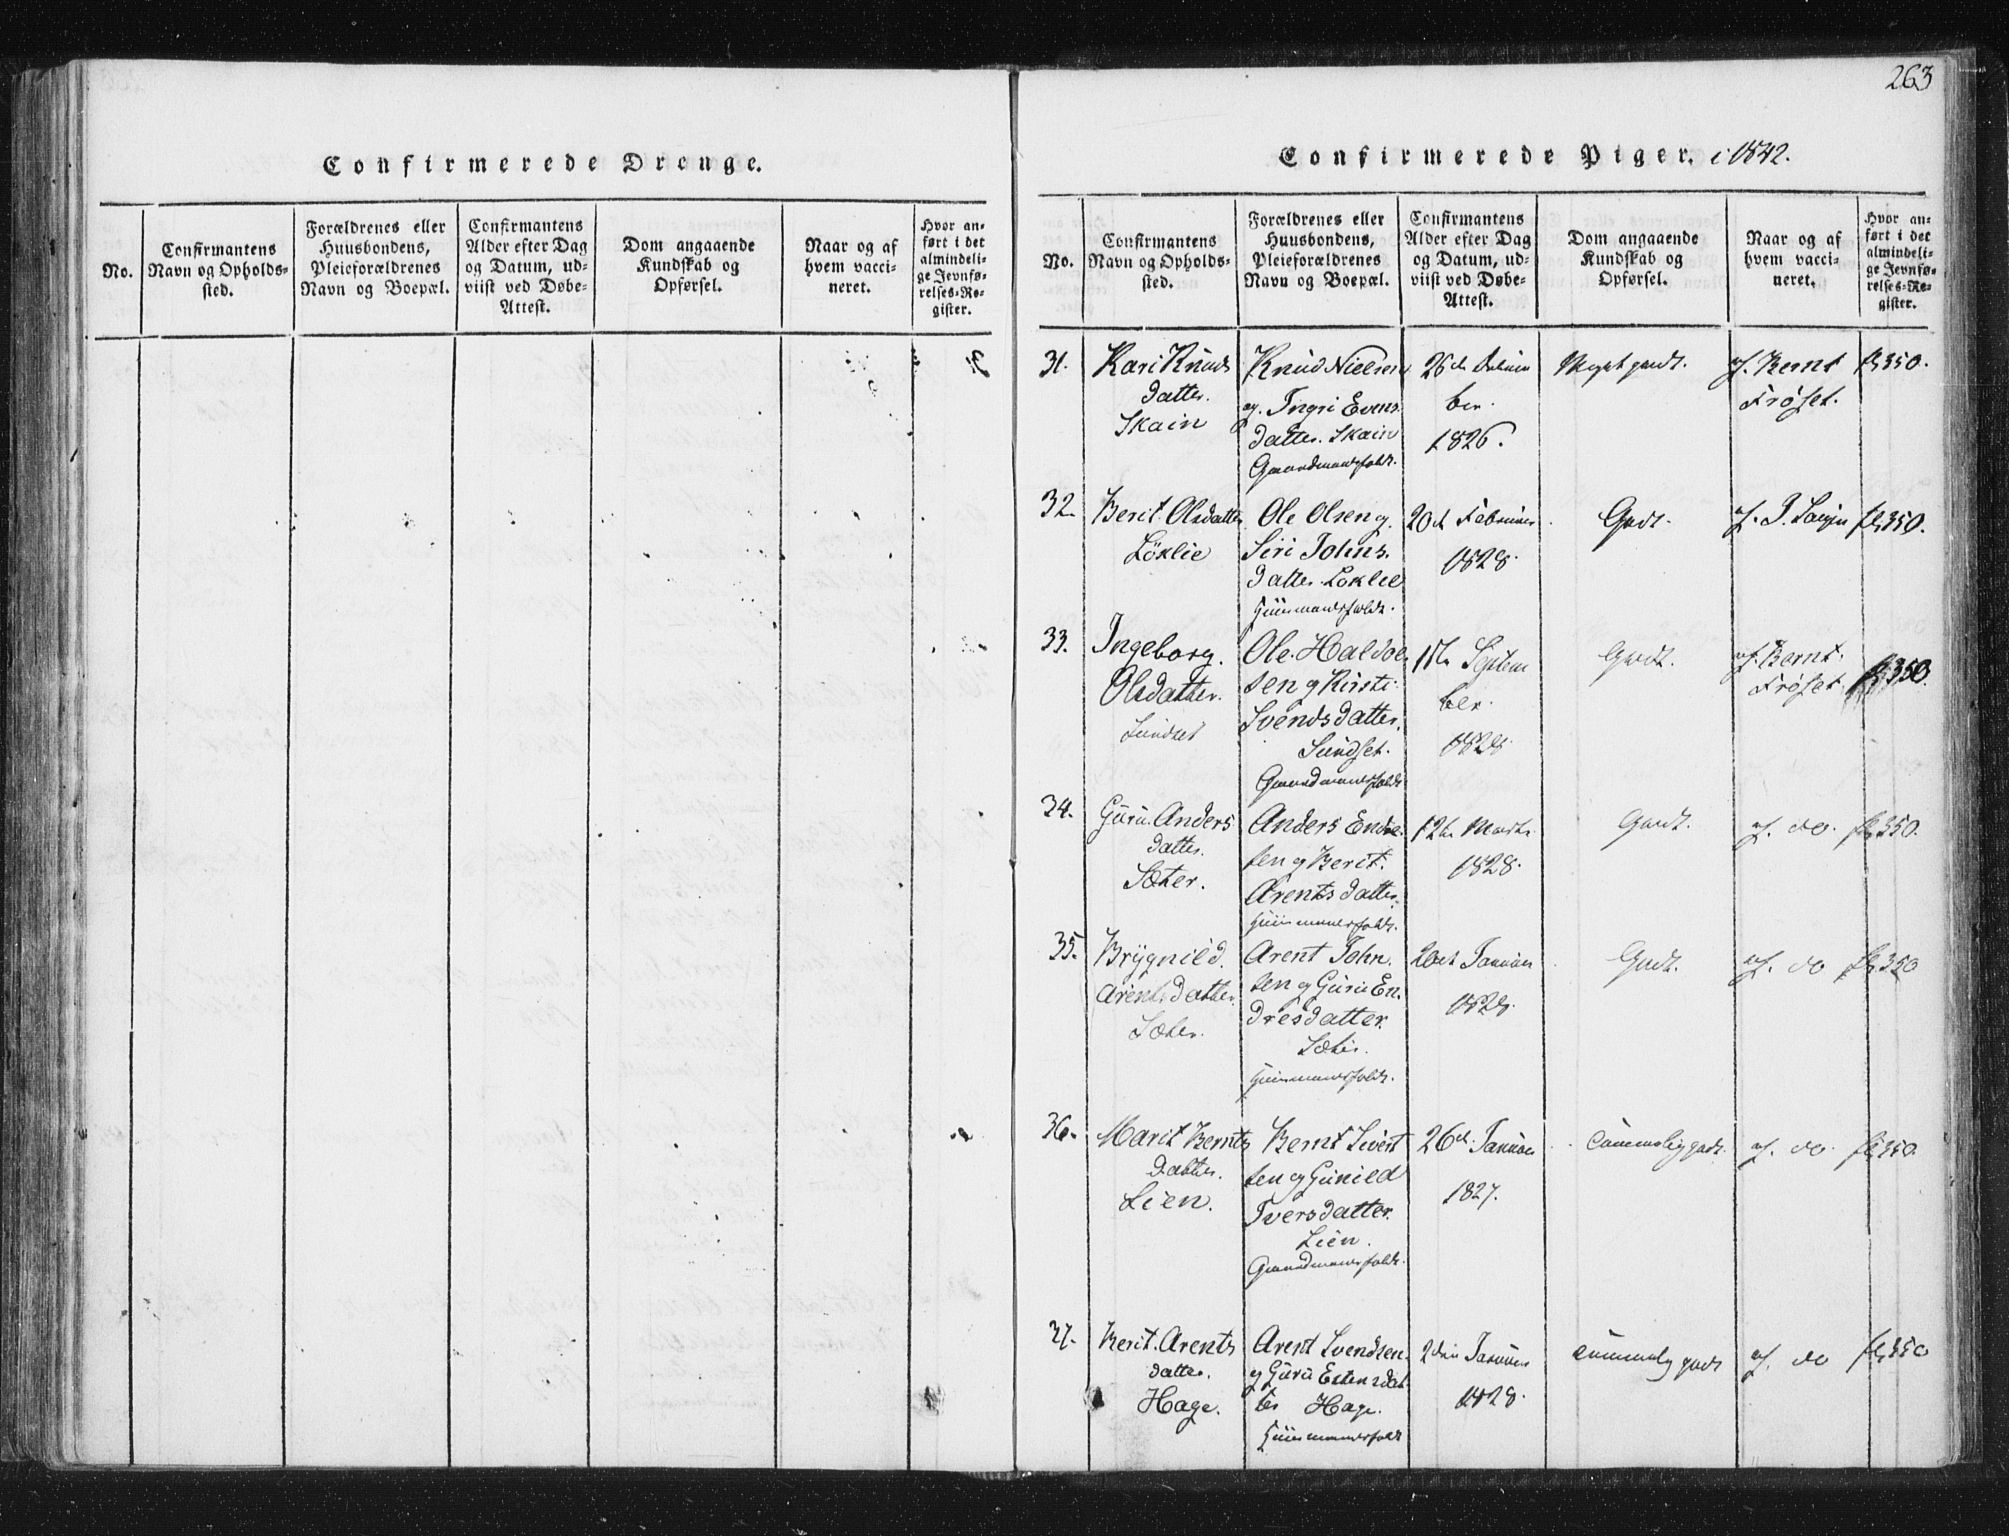 263
Confirmerede Drenge.
No.
Confirmantens
Navn og Opholds-
sted.
Forældrenes eller
Huusbondens,
Pleieforældrenes
Navn og Boepæl.
Confirmantens
Alder efter Dag
og Datum, ud-
viist ved Døbe-
Attest.
Dom angaaende
Kundskab og
Opførsel.
Naar og af
hvem vacci-
neret.
Hvor an-
ført i det
almindeli-
ge Jevnfø-
relses-Re-
gister.
Confirmerede Piger. i 1842.
No.
Confirmantens
Navn og Opholds-
sted.
Forældrenes eller
Huusbondens,
Pleieforældrenes
Navn og Boepæl.
Confirmantens
Alder efter Dag
og Datum, ud-
viist ved Døbe-
Attest.
Dom angaaende
Kundskab og
Opførsel.
Naar og af
hvem vacci-
neret.
Hvor an-
ført i det
almindeli-
ge Jevnfø-
relses-Re-
gister.
31.
Kari Knuds
datter.
Skain
Knud Nielsen
og Ingri Evens
datter. Skain
Gaardmandsfolk.
26de
ber.
1826.
Meget godt.
af. Bernt
Frøset.
350.
32.
Berit Olsdatter
Løklie
Ole Olsen og
Siri Johns.
datter Løklie
Huusmandsfolk.
20d Februar
1828.
Godt.
af.
350.
33.
Ingeborg.
Olsdatter.
Sundset
Ole Haldor
sen og Kirsti
Svendsdatter.
Sundset.
Gaardmandsfolk
Septem
ber.
1828
Godt.
af Bernt.
Frøset.
350.
34.
Guru Anders
datter.
Sæter.
Anders Endre
sen og Berit.
Arentsdatter.
Huusmandsfolk.
12te Marts
1828.
Godt.
af. do.
350.
35.
Brygnild.
Arentsdatter.
Sæter.
Arent John.
sen og Guru En.
dresdatter.
Sæter.
Huusmandsfolk.
Januar
1828.
Godt.
af. do
350
36.
Marit Bernts
datter.
Lien.
Bernt Sivert
sen og Gunild
Iversdatter.
Lien.
Gaardmandsfolk.
26d. Januar
1827.
Temmelig godt.
af. do.
350.
37.
Berit Arents
datter.
Hage.
Arent Svendsen.
og Guru Estensdat
ter Hage.
Huusmandsfolk
2den Januar
1828.
Temmelig godt
af. do
350